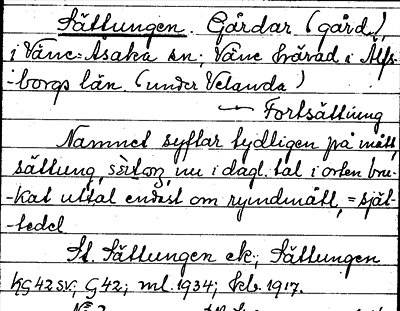 Sättungen. Gårdar (gård),
i Väne-Åsaka sn; Väne härad i Älfs-
-borgs län. (under Velanda)
Fortsättning
Namnet syftar tydligen på mått,
sättung, nu i dagl. tal i orten bru-
-kat uttal endast om rymdmått, = sjät-
-tedel
St. Sättungen ek.; Sättungen
KG42SV; G42; ml. 1934; kb. 1917.